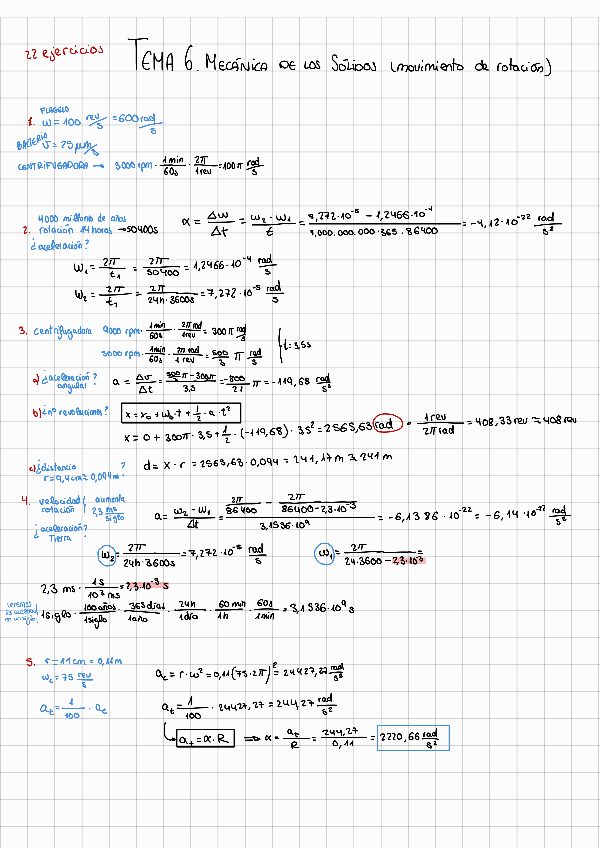 22 ejercicios
TEMA 6. MECÁNICA DE LOS SÓLIDOS (movimiento de rotación)
FLAGELO
1. ω = 100 rev/s = 600 rad/s
BACTERIA v = 25 μm/s
CENTRIFUGADORA → 3000 rpm · 1 min/60s · 2π/1 rev = 100π rad/s
4000 millones de años
2. rotación 14 horas → 50400s
¿aceleración?
α = Δω/Δt = (ω₂ - ω₁)/t = (7,272·10⁻⁵ - 1,2466·10⁻⁴)/(4.000.000.000·365·86400) = -4,12·10⁻²² rad/s²
ω₁ = 2π/t₁ = 2π/50400 = 1,2466·10⁻⁴ rad/s
ω₂ = 2π/t₁ = 2π/(24h·3600s) = 7,272·10⁻⁵ rad/s
3. centrifugadora 9000 rpm · 1min/60s · 2π rad/1 rev = 300π rad/s
3000 rpm · 1min/60s · 2π rad/1 rev = 500/3 π rad/s
t = 3,5s
a) ¿aceleración angular? a = Δv/Δt = (500/3 π - 300π)/3,5 = -800/21 π = -119,68 rad/s²
b) ¿nº revoluciones? x = x₀ + ω₀·t + 1/2 · a · t²
x = 0 + 300π · 3,5 + 1/2 · (-119,68) · 3,5² = 2565,63 rad · 1 rev/2π rad = 408,33 rev ≈ 408 rev
c) ¿distancia ? d = x · r = 2565,63 · 0,094 = 241,17m ≈ 241m
r = 9,4cm = 0,094m
4. velocidad rotación aumenta 2,3 ms/siglo
¿aceleración? Tierra
a = (ω₂ - ω₁)/Δt = (2π/86400 - 2π/(86400 - 2,3·10⁻³))/3,1536·10⁹ = -6,1386·10⁻²² = -6,14·10⁻²² rad/s²
ω₂ = 2π/(24h·3600s) = 7,272·10⁻⁵ rad/s
ω₁ = 2π/(24·3600 - 2,3·10⁻³) =
2,3 ms · 1s/10³ ms = 2,3·10⁻³ s
1 siglo · 100 años/1 siglo · 365 días/1 año · 24h/1 día · 60 min/1h · 60s/1min = 3,1536·10⁹ s
5. r = 11 cm = 0,11m
ω = 75 rev/s
a_t = 1/100 · a_c
a_c = r · ω² = 0,11(75·2π)² = 24427,27 rad/s²
a_t = 1/100 · 24427,27 = 244,27 rad/s²
a_t = α · R ⇒ α = a_t/R = 244,27/0,11 = 2220,66 rad/s²